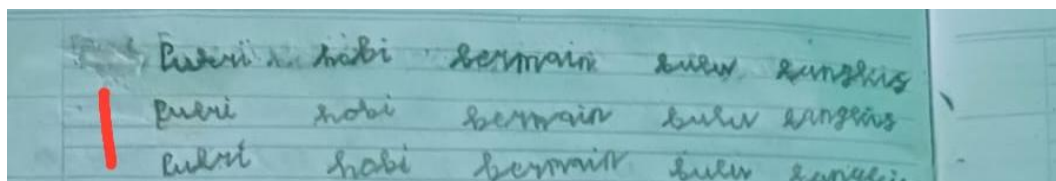 Putri hobi bermain bulu tangkis
Putri hobi bermain bulu tangkis
Putri hobi bermain bulu tangkis